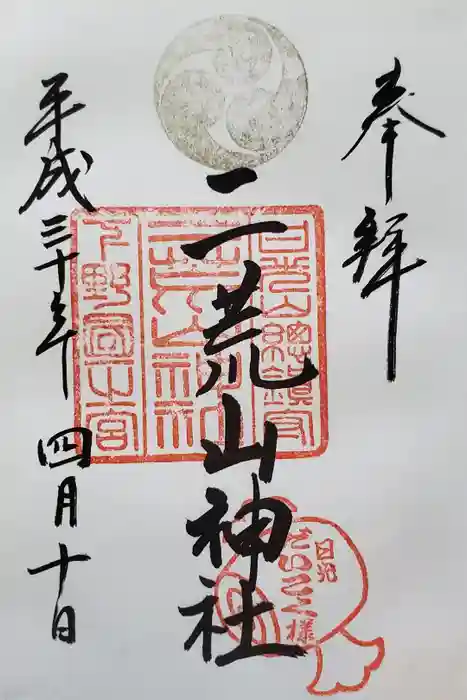 奉拝
日光山總鎮守
二荒山神社
下野國一宮
二荒山神社
日光
だいこく様
平成三十年四月十日